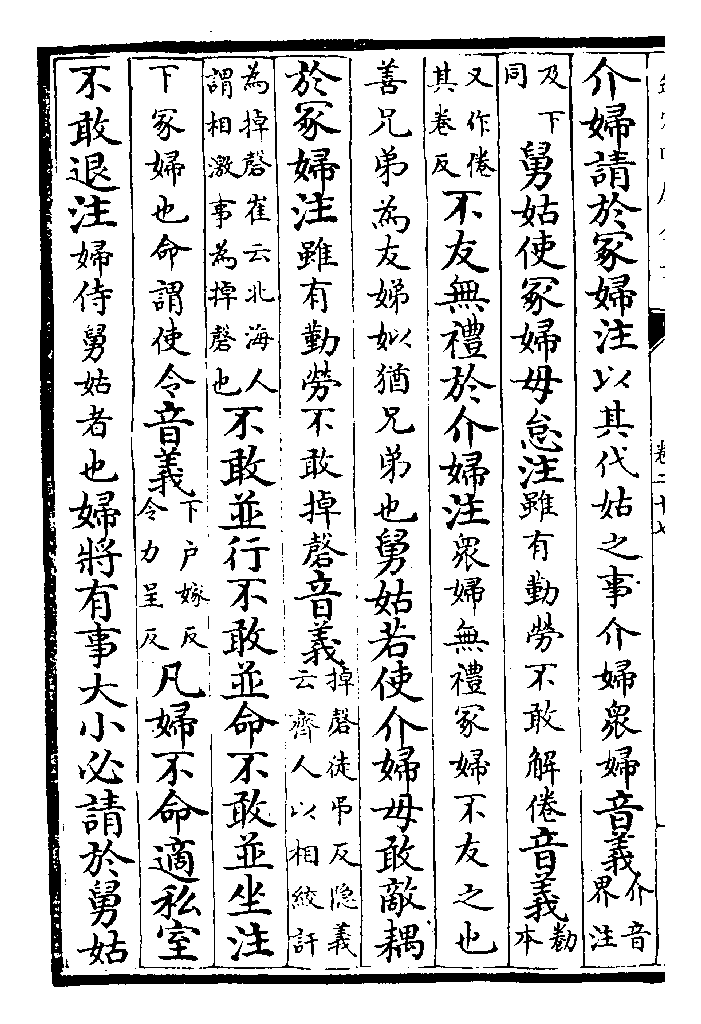 介婦請於冢婦注以其代姑之事介婦衆婦音義介音界注
及下同舅姑使冢婦毋怠注雖有勤勞不敢解倦音義勌本
又作倦其卷反不友無禮於介婦注衆婦無禮冢婦不友之也
善兄弟為友娣姒猶兄弟也舅姑若使介婦毋敢敵耦
於冢婦注雖有勤勞不敢掉磬音義掉磬徒弔反隐義云齊人以相絞訐
為掉磬崔云北海人謂相激事為掉磬也不敢並行不敢並命不敢並坐注
下冢婦也命謂使令音義下户嫁反令力呈反凡婦不命適私室
不敢退注婦侍舅姑者也婦將有事大小必請於舅姑
卷二十七